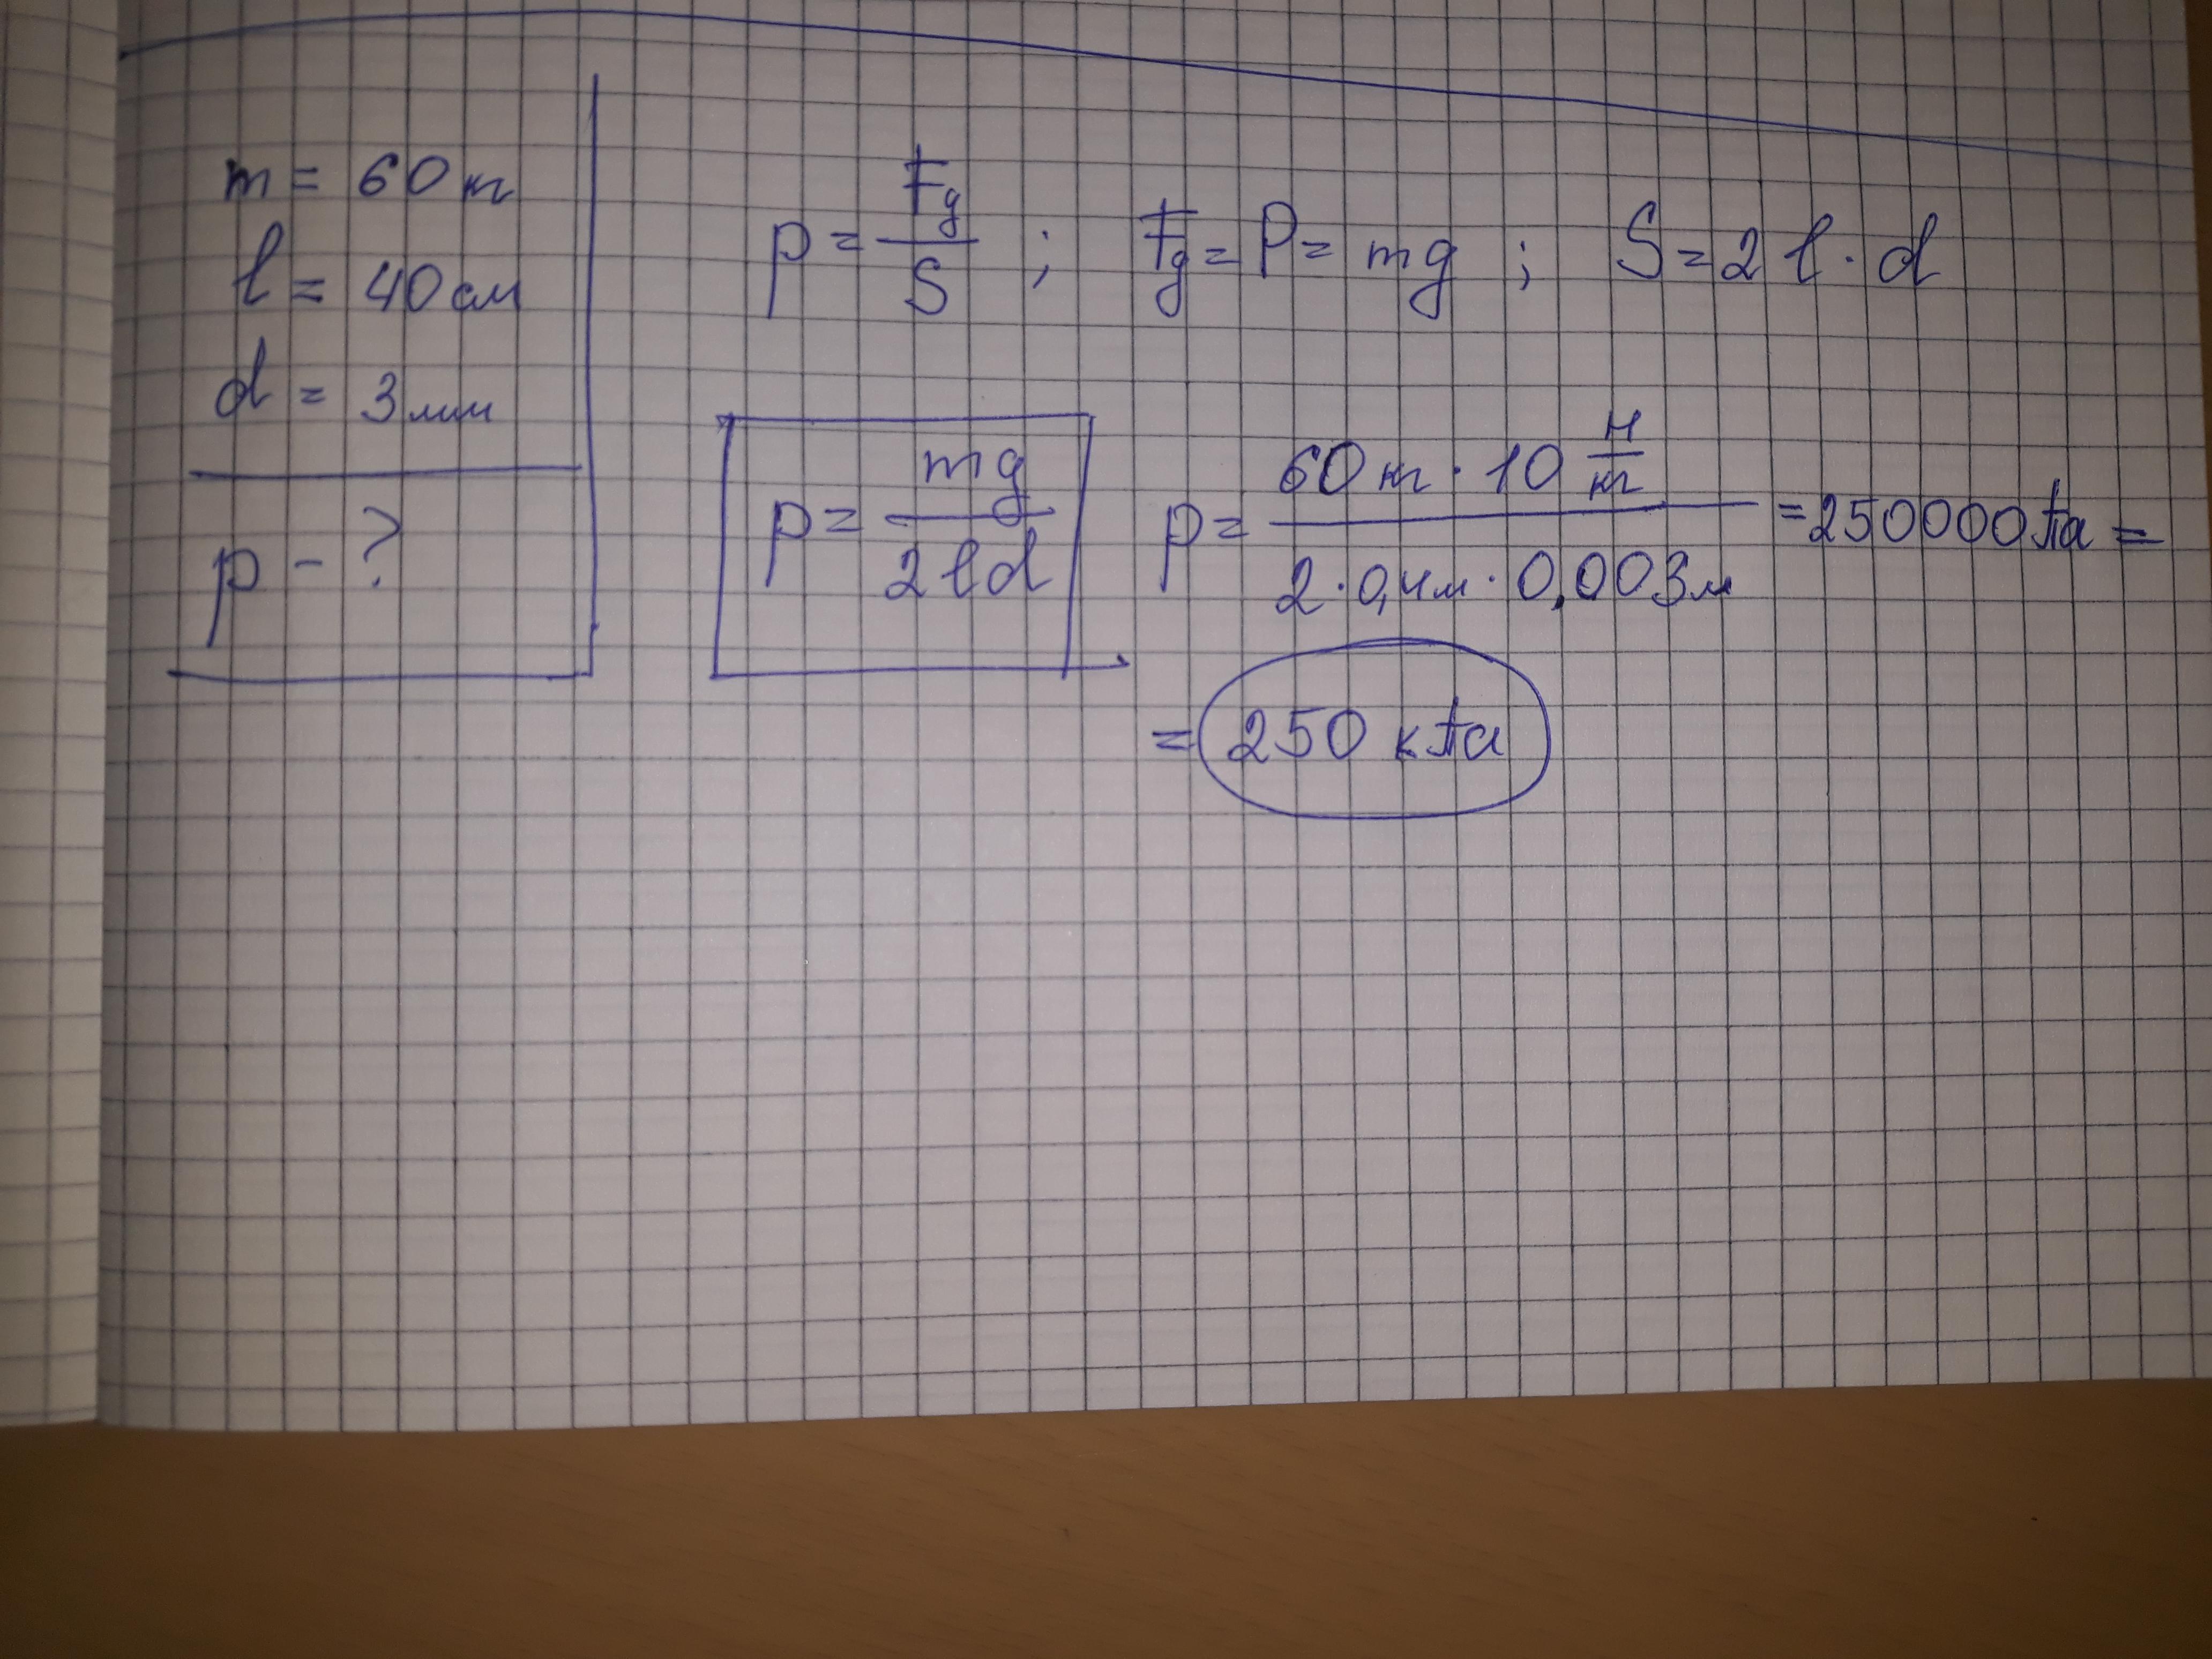 m = 60 кг
l = 40 см
d = 3 мм
p - ?
p = Fg / S ; Fg = P = mg ; S = 2 l · d
p = mg / 2ld
p = 60 кг · 10 Н/кг / 2 · 0,4м · 0,003м = 250000 Па =
= 250 кПа